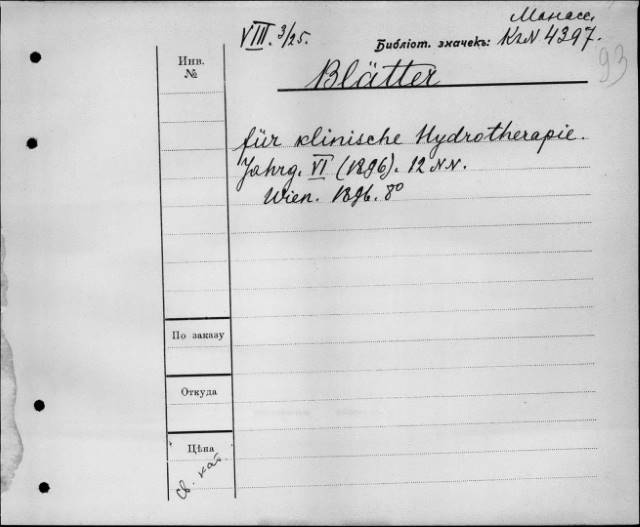 Манасс.
VIII. 3/25.
Библіот. значекъ: KrN 4397.
93
Инв.
№
Blätter
für klinische Hydrotherapie.
Jahrg. VI (1896). 12 NN.
Wien. 1896. 8°
По заказу
Откуда
Цѣна
Св. кат.